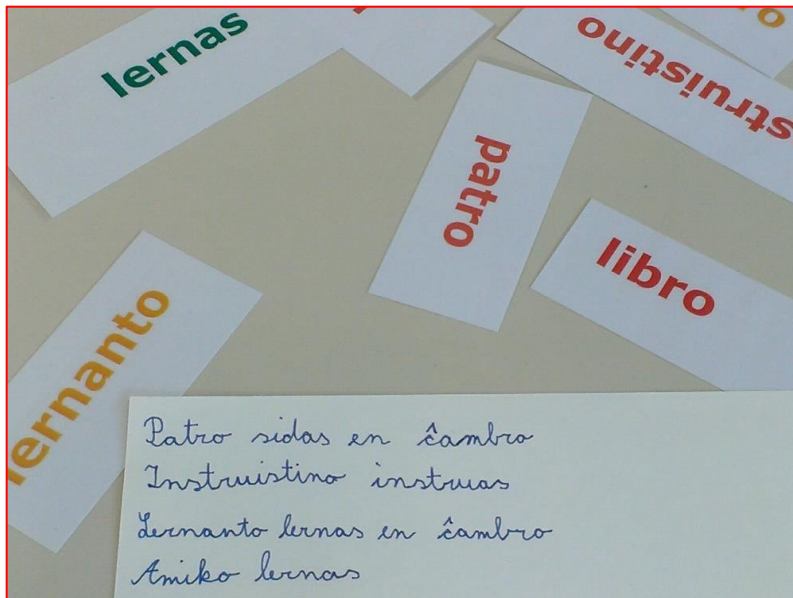 lernas
struistino
patro
libro
lernanto
Patro sidas en ĉambro
Instruistino instruas
Lernanto lernas en ĉambro
Amiko lernas